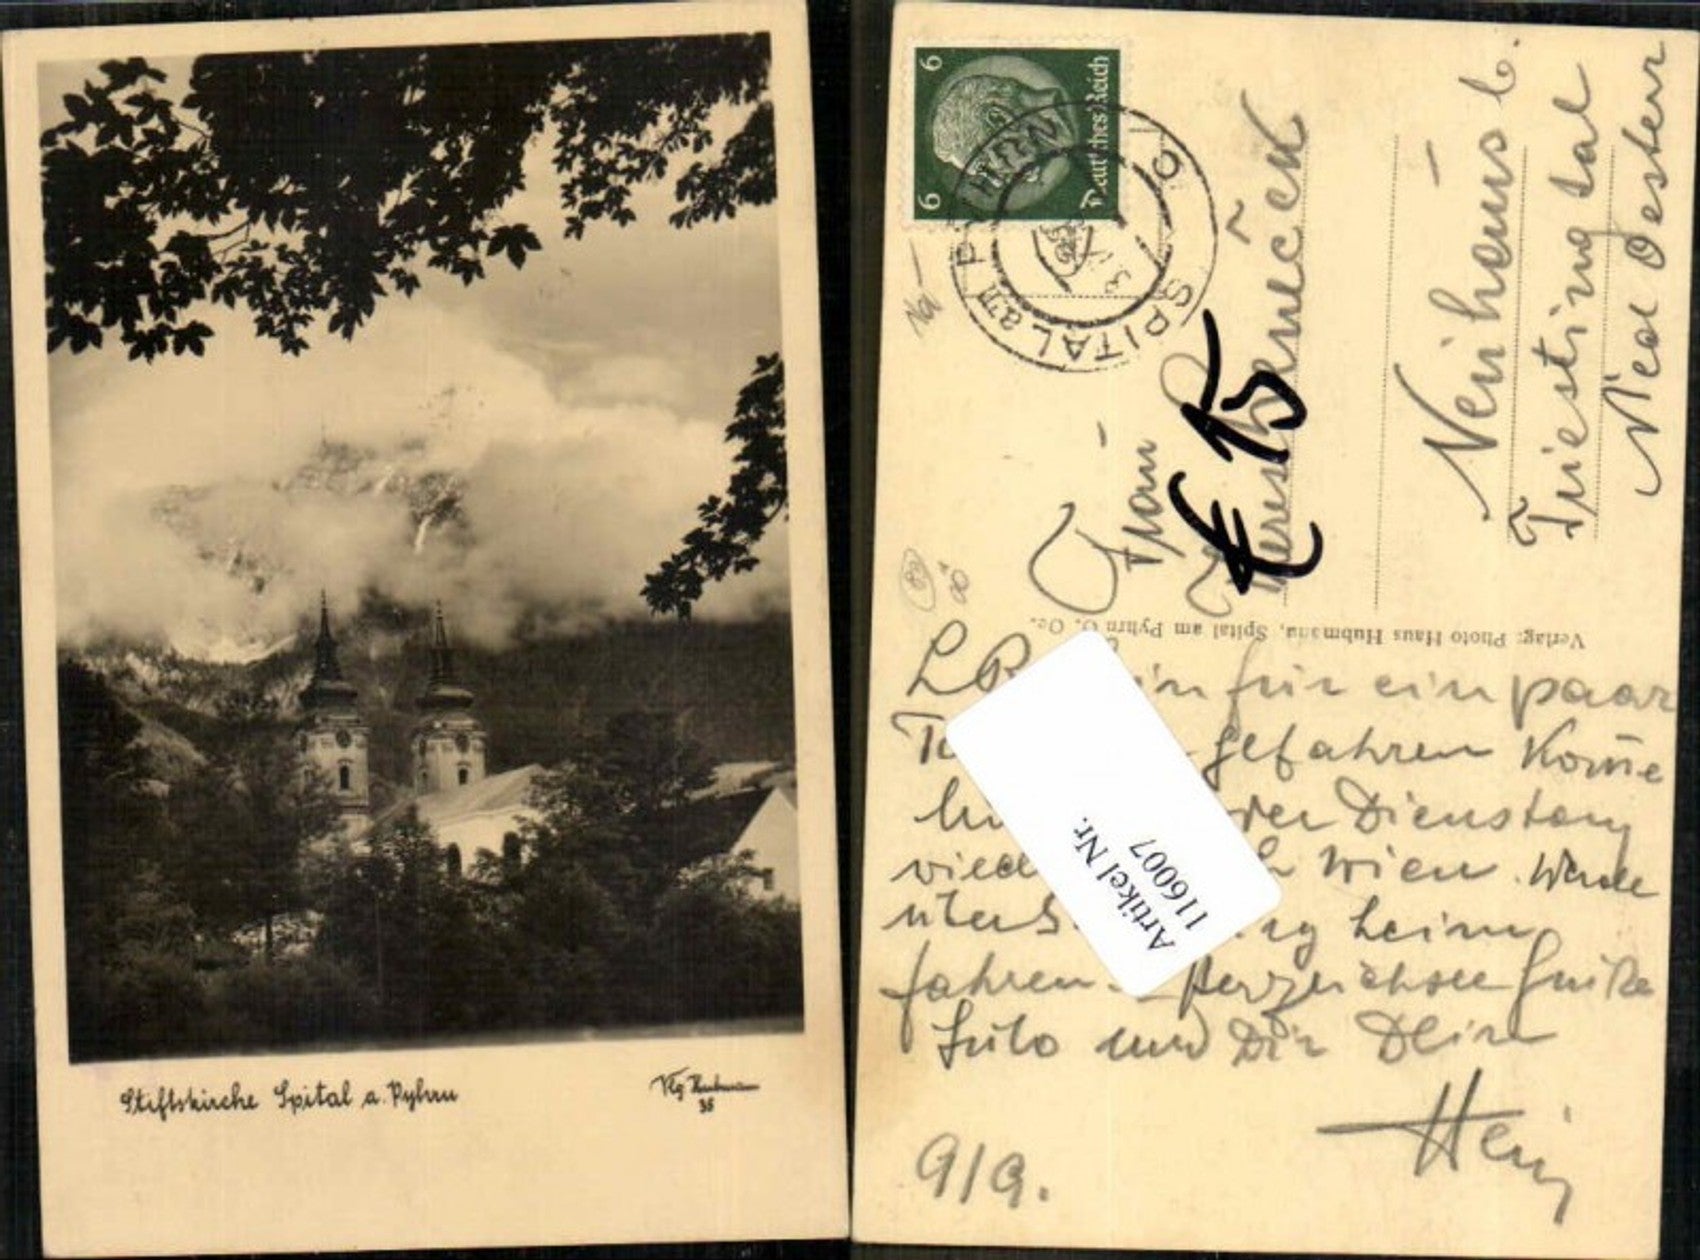 Stiftskirche Spital a. Pyhrn
Vlg Hubmann
36
6 6
Deutsches Reich
SPITAL am PYHRN
SPITAL
Frau
Neuhaus b.
Triestingtal
Ned Oesterr
€ 15
Verlag: Photo Haus Hubmann, Spital am Pyhrn O. Oe.
LB in für ein paar
gefahren Komme
oder Dienstag
Wien. Werde
heim
fahren. Herzlichste Grüße
Lilo und Dir Dein
Heinz
9/9.
Artikel Nr.
116007